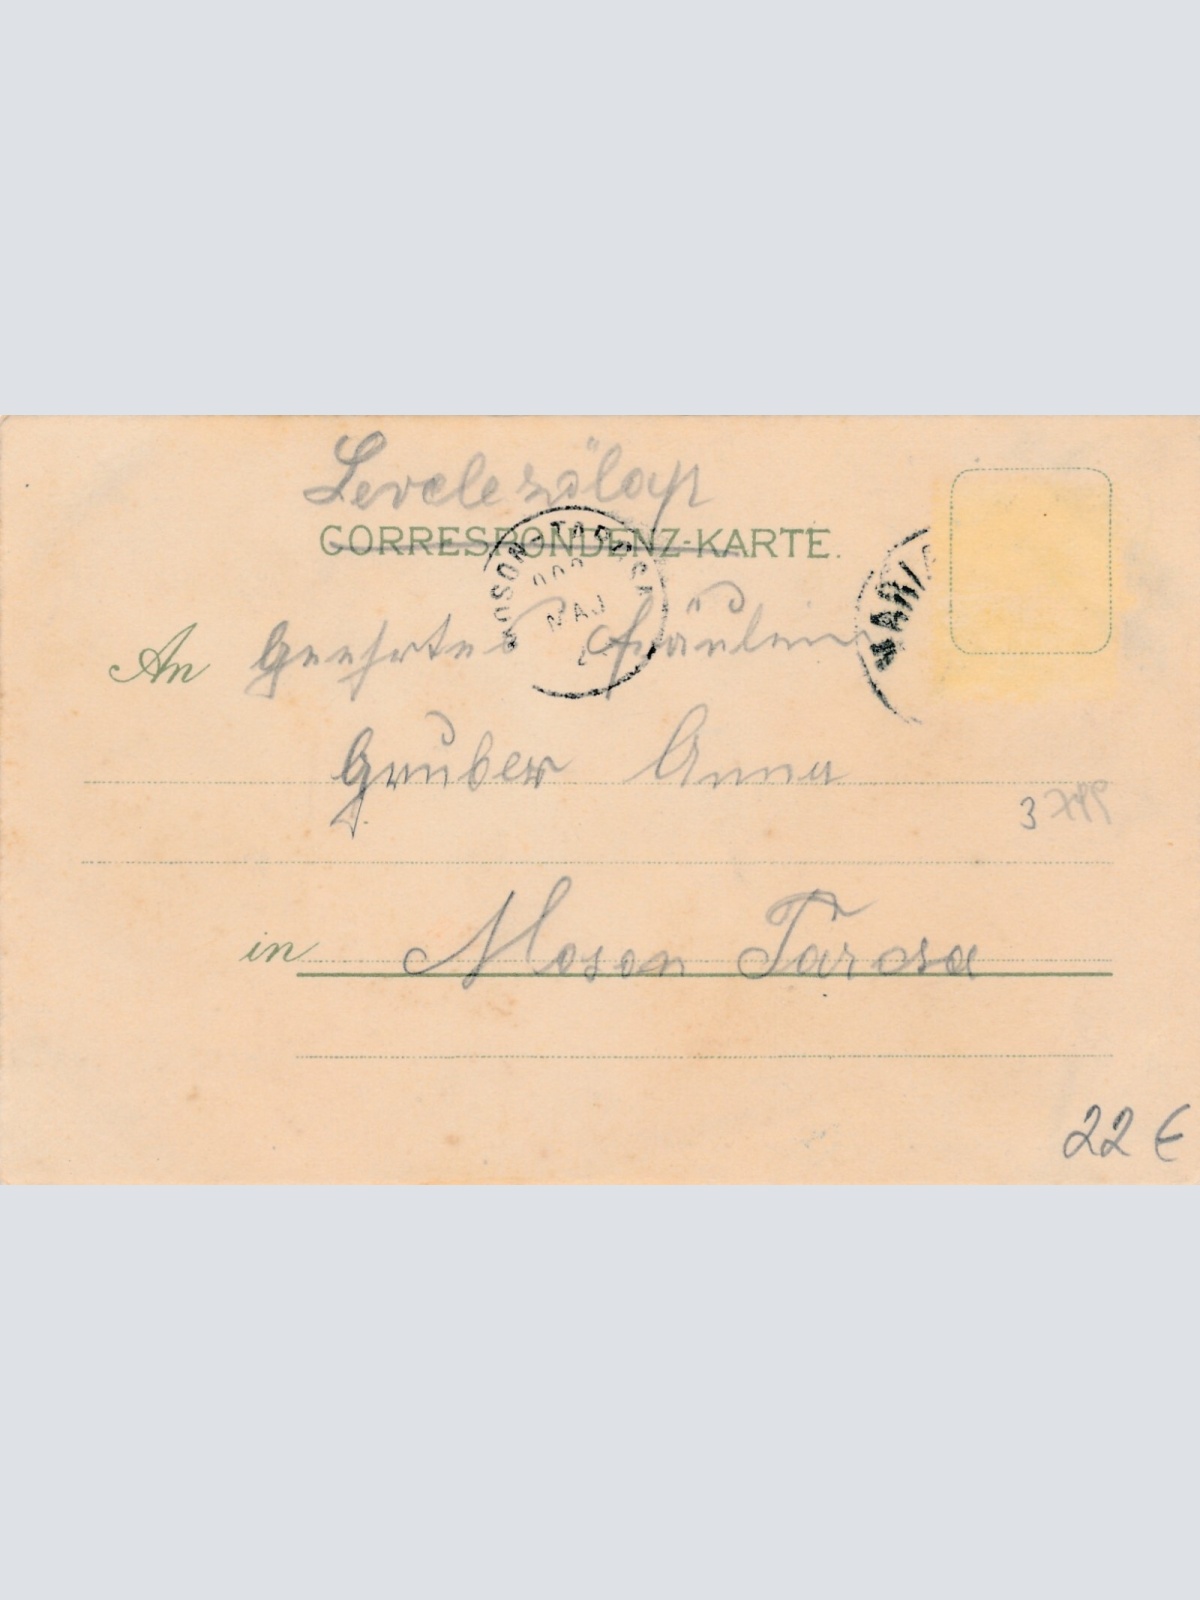 Levelezőlap
CORRESPONDENZ-KARTE.
MOSON-TARCSA
900
MAJ
MARIA
An Geehrtes Fräulein
Gruber Anna
3799
in Moson Tarcsa
22 €